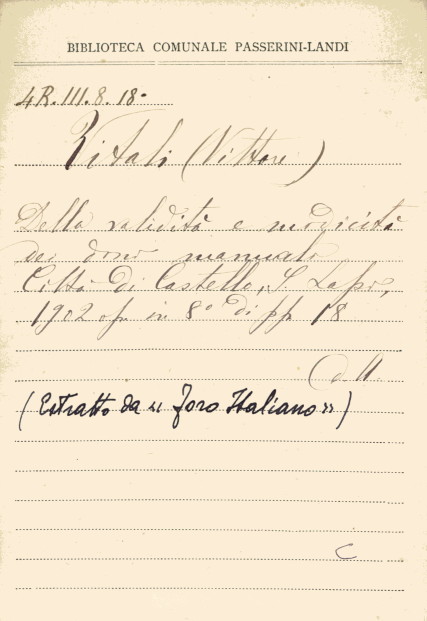 BIBLIOTECA COMUNALE PASSERINI-LANDI
4R.III.8.18.
Vitali (Vittore)
Della validità e modicità
dei doni manuali
Città di Castello, S. Lapi,
1902 op. in 8° di pp 18
(Estratto da «Foro Italiano»)
C